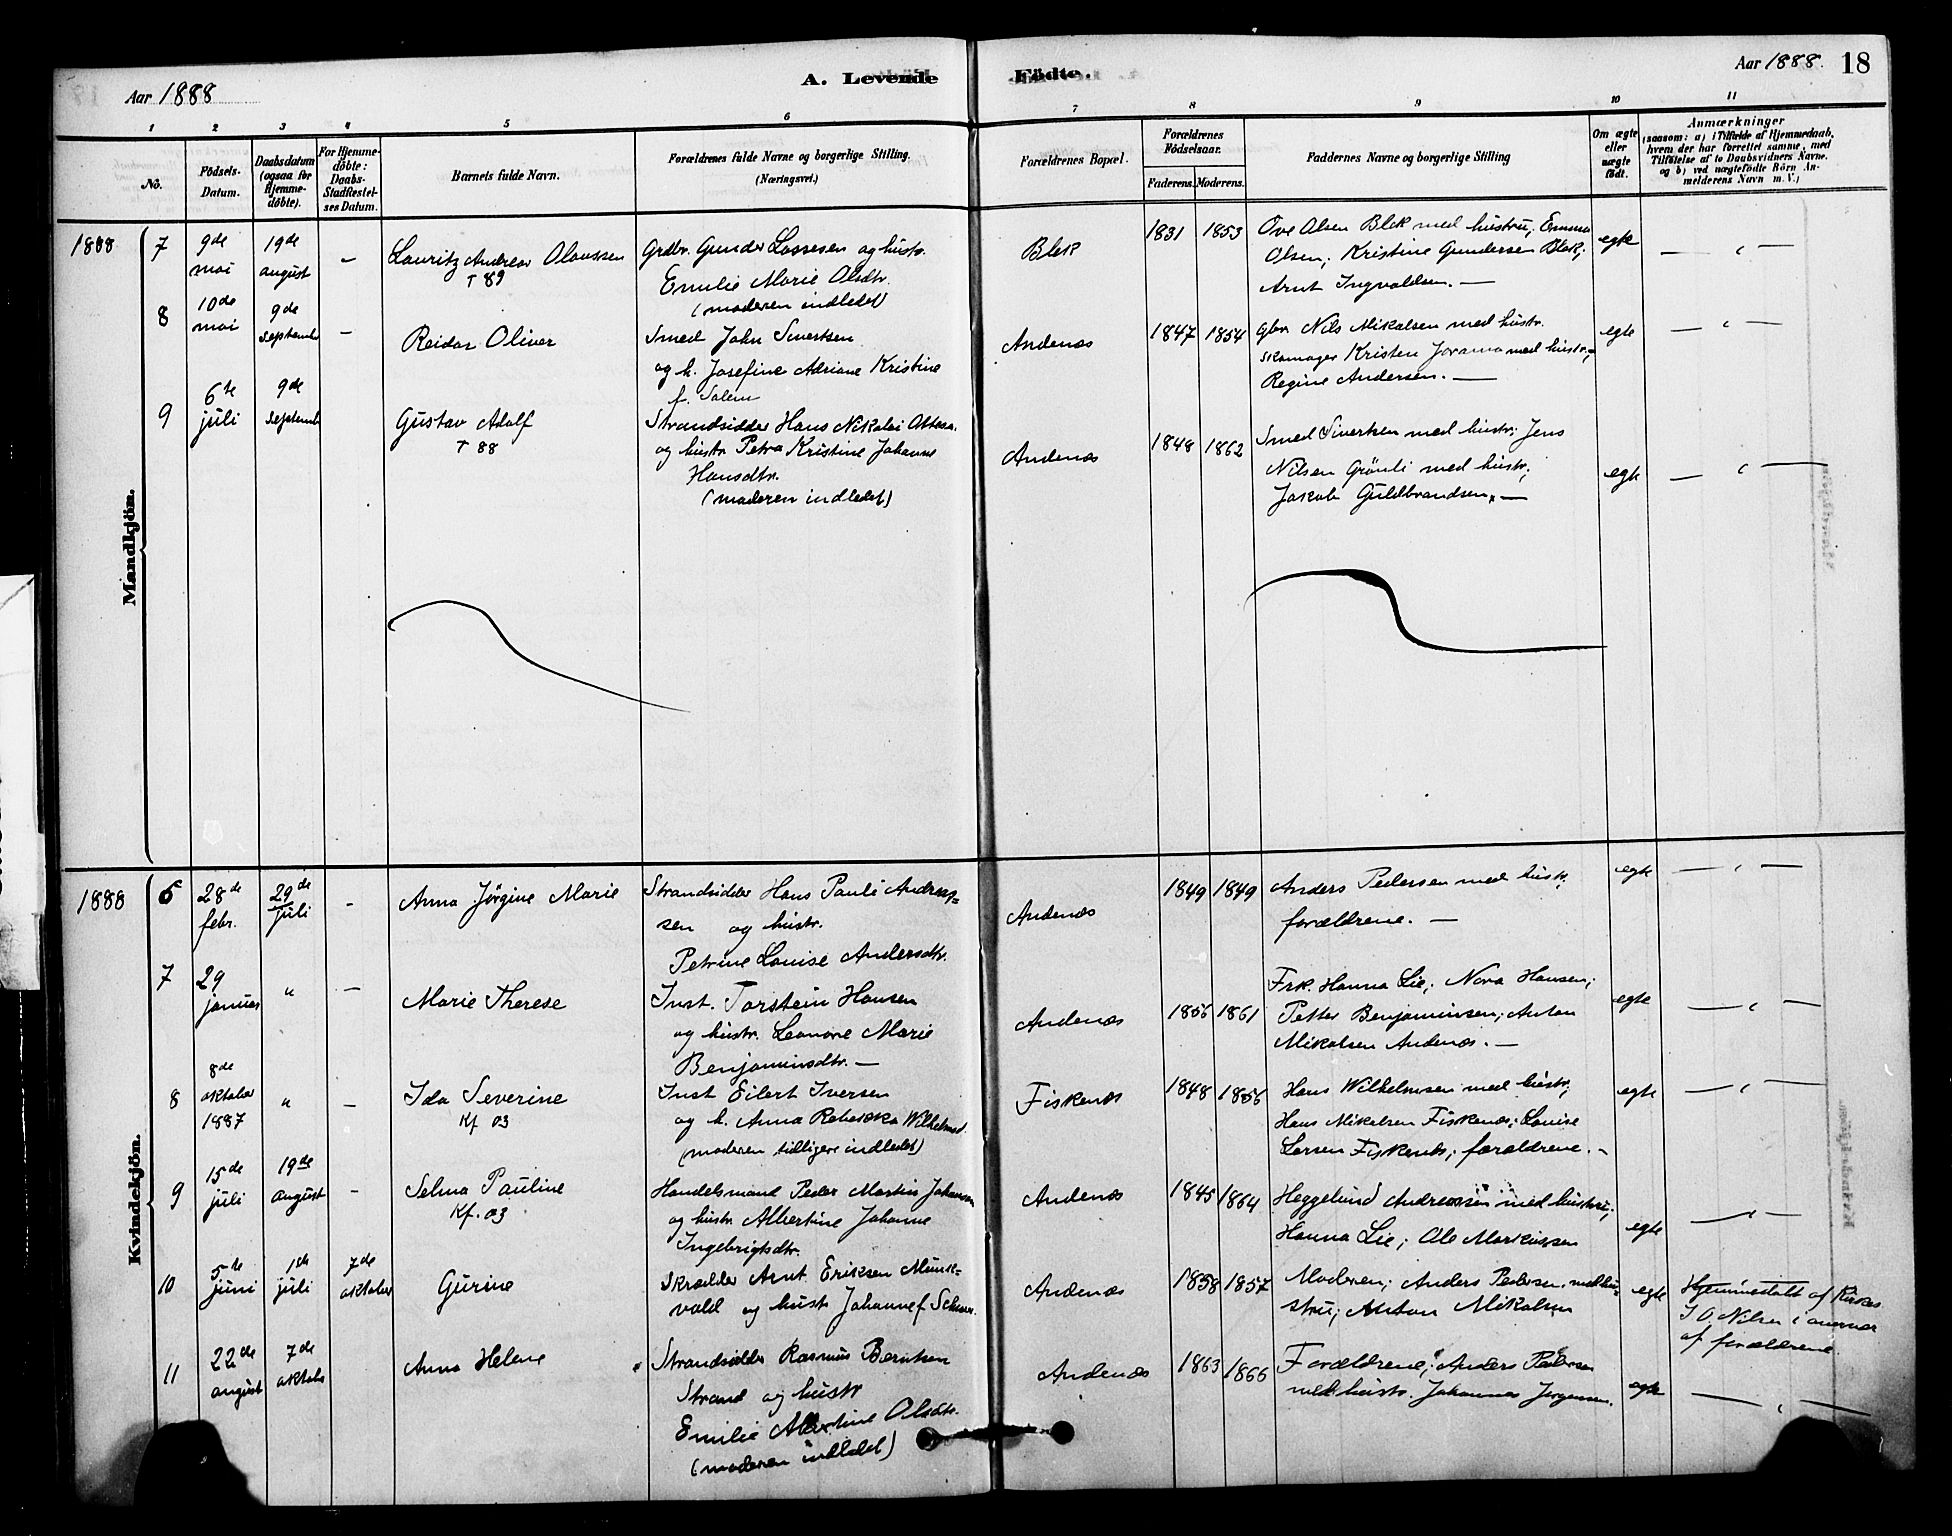 Aar 1888
A. Levende
Födte.
Aar 1888.
18
1
2
3
4
5
6
7
8
9
10
11
No.
Födsels-
Datum.
Daabsdatum
(ogsaa for
Hjemme-
döbte).
For Hjemme-
döbte:
Daabs-
Stadfæstel-
ses Datum.
Barnets fulde Navn.
Forældrenes fulde Navne og borgerlige Stilling.
(Næringsvei.)
Forældrenes Bopæl.
Forældrenes
Födselsaar.
Faderens.
Moderens.
Faddernes Navne og borgerlige Stilling
Om ægte
eller
uægte
födt.
Anmærkninger
(saasom: a) i Tilfælde af Hjemmedaab,
hvem der har forrettet samme, med
Tilföielse af to Daabsvidners Navne.
og b) ved uægtefödte Börn An-
melderens Navn m. V.)
Mandkjön.
1888
7
9de
mai
19de
august
-
Lauritz Andreas Olaussen
T 89
Grdbr. Gunder Lassesen og hustr.
Emilie Marie Olsdtr.
(moderen indledet)
Blek
1831
1853
Ove Olsen Blek med hustru, Emma
Olsen; Kristine Gundersen Blek;
Arnt Ingvaldsen. —
egte
— " —
8
10de
mai
9de
september
-
Reidar Oliver
Smed John Sivertsen
og h. Josefine Adriane Kristine
f. Salem
Andenæs
1847
1854
gbr. Nils Mikalsen med hustr.
skomager Kristen Jorama med hustr.;
Regine Andersen. —
egte
— " —
9
6te
juli
9de
september
Gustav Adolf
T 88
Strandsidder Hans Nikolai Ottesen
og hustr. Petra Kristine Johanne
Hansdtr.
(moderen indledet)
Andenæs
1848
1862
Smed Sivertsen med hustr; Jens
Nilsen Grönli med hustr;
Jakob Guldbrandsen. —
egte
— " —
Kvindekjön.
1888
6
28de
febr.
29de
juli
-
Anna Jørgine Marie
Strandsidder Hans Pauli Andreas=
sen og hustr.
Petrine Louise Andersdtr.
Andenæs
1849
1849
Anders Pedersen med hustr;
forældrene. —
egte
— " —
7
29
januar
"
-
Marie Therese
Inst. Torstein Hansen
og hustr. Leonore Marie
Benjaminsdtr. —
Andenæs
1856
1861
Frk. Hanna Lie; Nora Hansen;
Petter Benjaminsen; Anton
Mikalsen Andenæs. —
egte
— " —
8
8de
oktober
1887
"
-
Ida Severine
Kf 03
Inst Eilert Iversen
og h. Anna Rebekka Wilhelmsd.
(moderen tidligere indledet)
Fiskenæs
1848
1856
Hans Wilhelmsen med hustr;
Hans Mikalsen Fiskenæs; Louise
Larsen Fiskenæs; forældrene. -
egte
— " —
9
15de
juli
19de
august
-
Selma Pauline
Kf. 03
Handelsmand Peder Martin Johansen
og hustr Albertine Johanne
Ingebrigtsdtr.
Andenæs
1845
1864
Heggelund Andreassen med hustru;
Hanna Lie; Ole Markussen
egte
— " —
10
5te
juni
1ste
juli
7de
oktober
Gurine
Skrædder Arnt Eriksen Munk=
vold og hustr Johanne f.
Andenæs
1858
1857
Moderen; Anders Pedersen med hu-
stru; Anton Mikalsen
egte
Hjemmedöbt af Kirkes.
J O. Nilsen i nærvær
af forældrene
11
22de
august
7de
oktober
Anna Helene
Strandsidder Rasmus Berntsen
Strand og hustr
Emilie Albertine Olsdtr.
(moderen indledet)
Andenæs
1863
1866
Forældrene; Anders Pedersen
med hustr. Johannes Jørgensen.
egte
— " —